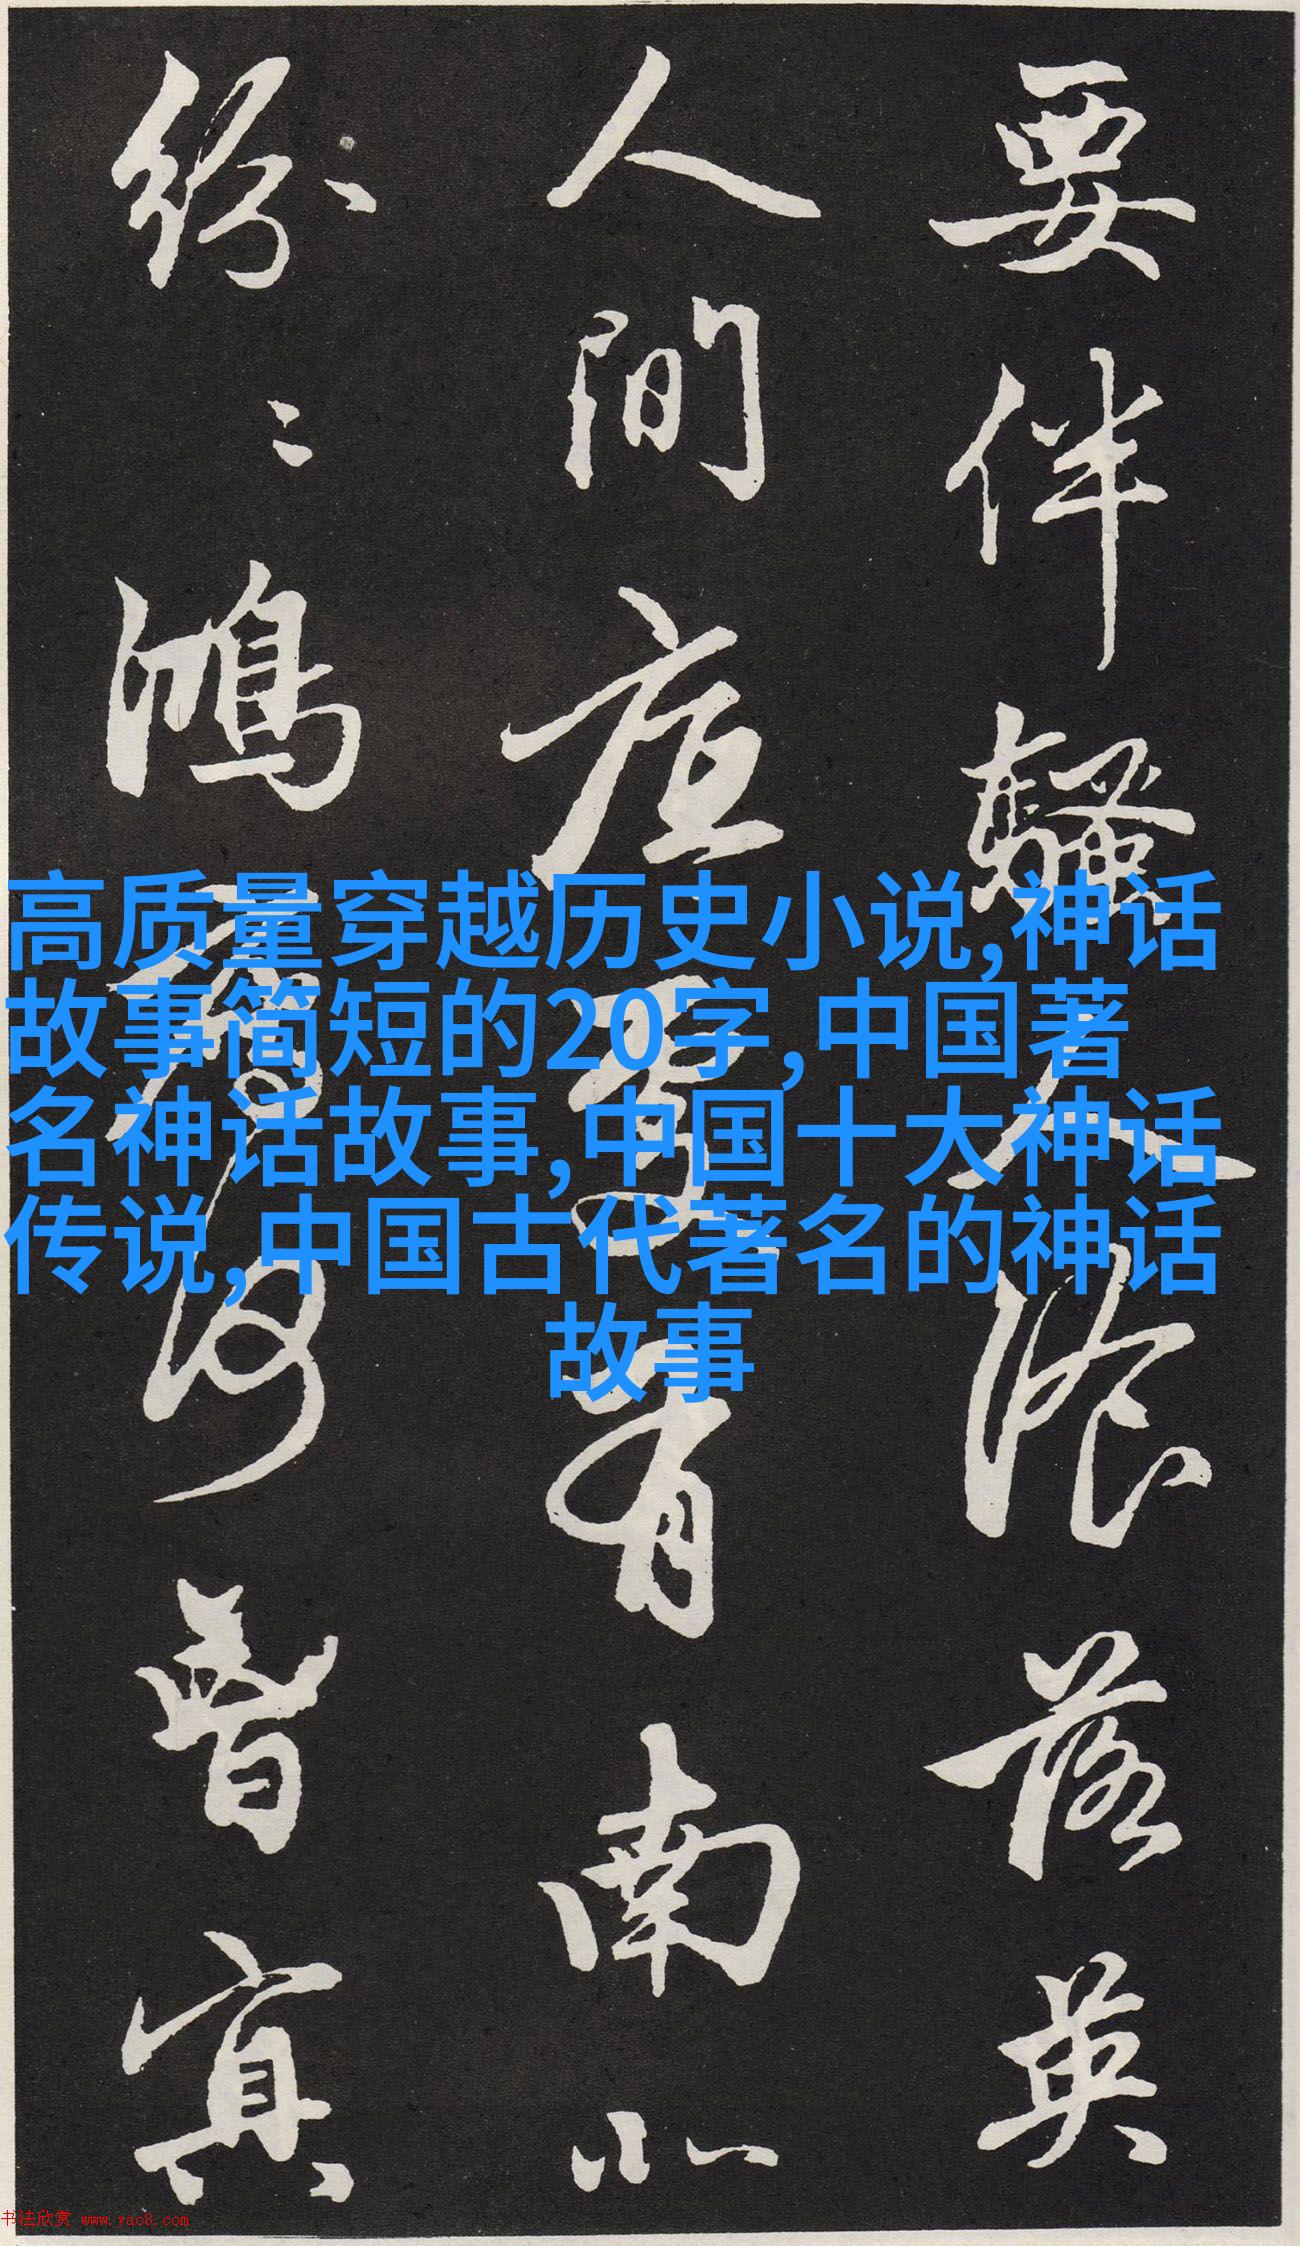 要伴騷人飡落英
人間底處有南北
紛紛鴻雁何曾冥
高质量穿越历史小说,神话
故事简短的20字,中国著
名神话故事,中国十大神话
传说,中国古代著名的神话
故事
书法欣赏 www.yac8.com